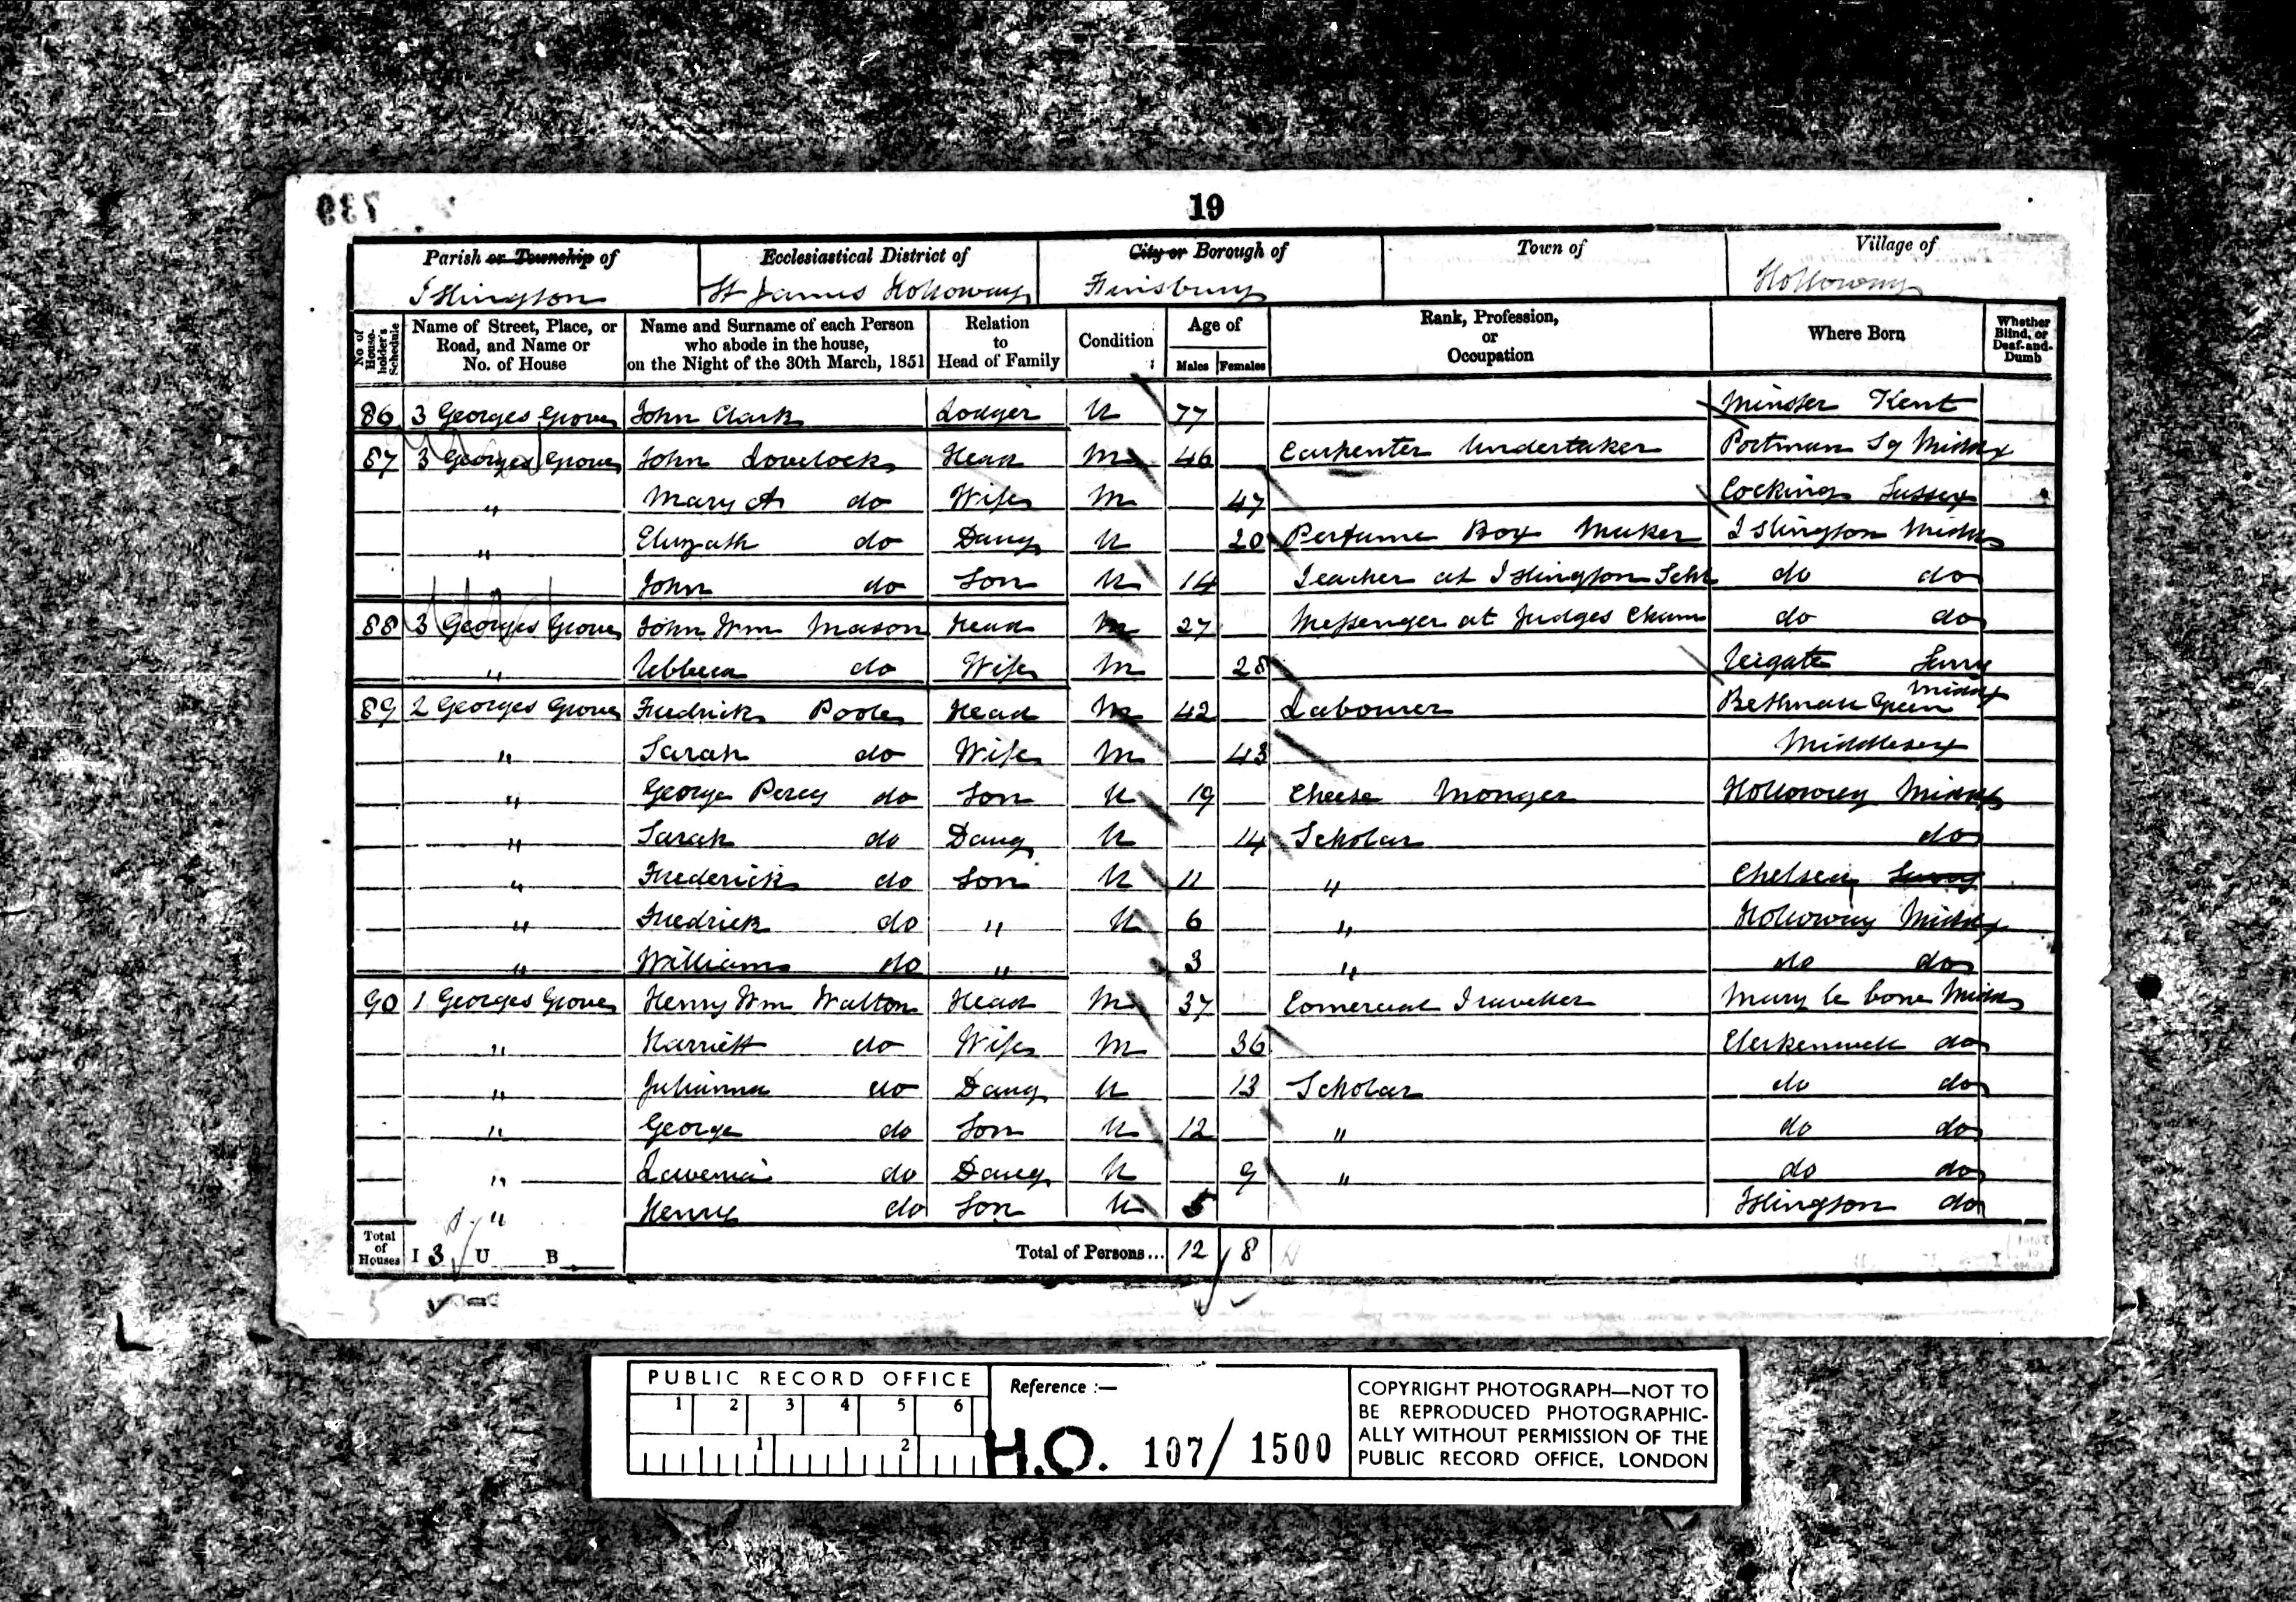 739
19
Parish or Township of Ecclesiastical District of City or Borough of Town of Village of
Islington St James Holloway Finsbury Holloway
No of House-holder's Schedule
Name of Street, Place, or Road, and Name or No. of House
Name and Surname of each Person who abode in the house, on the Night of the 30th March, 1851
Relation to Head of Family
Condition
Age of
Males Females
Rank, Profession, or Occupation
Where Born
Whether Blind, or Deaf-and-Dumb
86 3 Georges Grove John Clark Lodger U 77 Minster Kent
87 3 Georges Grove John Lovelock Head M 46 Carpenter Undertaker Portman Sq Middx
" Mary A do Wife M 47 Cocking Sussex
" Elizath do Daug U 20 Perfume Box Maker Islington Middx
" John do Son U 14 Teacher at Islington Schl do do
88 3 Georges Grove John Wm Mason Head M 27 Messenger at Judges Cham do do
" Rebbeca do Wife M 28 Reigate Surry
89 2 Georges Grove Fredrick Poole Head M 42 Labourer Bethnall Green Middx
" Sarah do Wife M 43 Middlesex
" George Percy do Son U 19 Cheese Monger Holloway Middx
" Sarah do Daug U 14 Scholar do
" Frederick do Son U 11 " Chelsea Surry
" Fredrick do " U 6 " Holloway Middx
" William do " 3 " do do
90 1 Georges Grove Henry Wm Walton Head M 37 Comercial Traveller Mary le bone Middx
" Harriett do Wife M 36 Clerkenwell do
" Julianna do Daug U 13 Scholar do do
" George do Son U 12 " do do
" Lavenia do Daug U 9 " do do
" Henry do Son U 5 Islington do
Total of Houses I 3 U B Total of Persons... 12 8
PUBLIC RECORD OFFICE
1 2 3 4 5 6
1 2
Reference :—
H.O. 107/1500
COPYRIGHT PHOTOGRAPH—NOT TO
BE REPRODUCED PHOTOGRAPHIC-
ALLY WITHOUT PERMISSION OF THE
PUBLIC RECORD OFFICE, LONDON